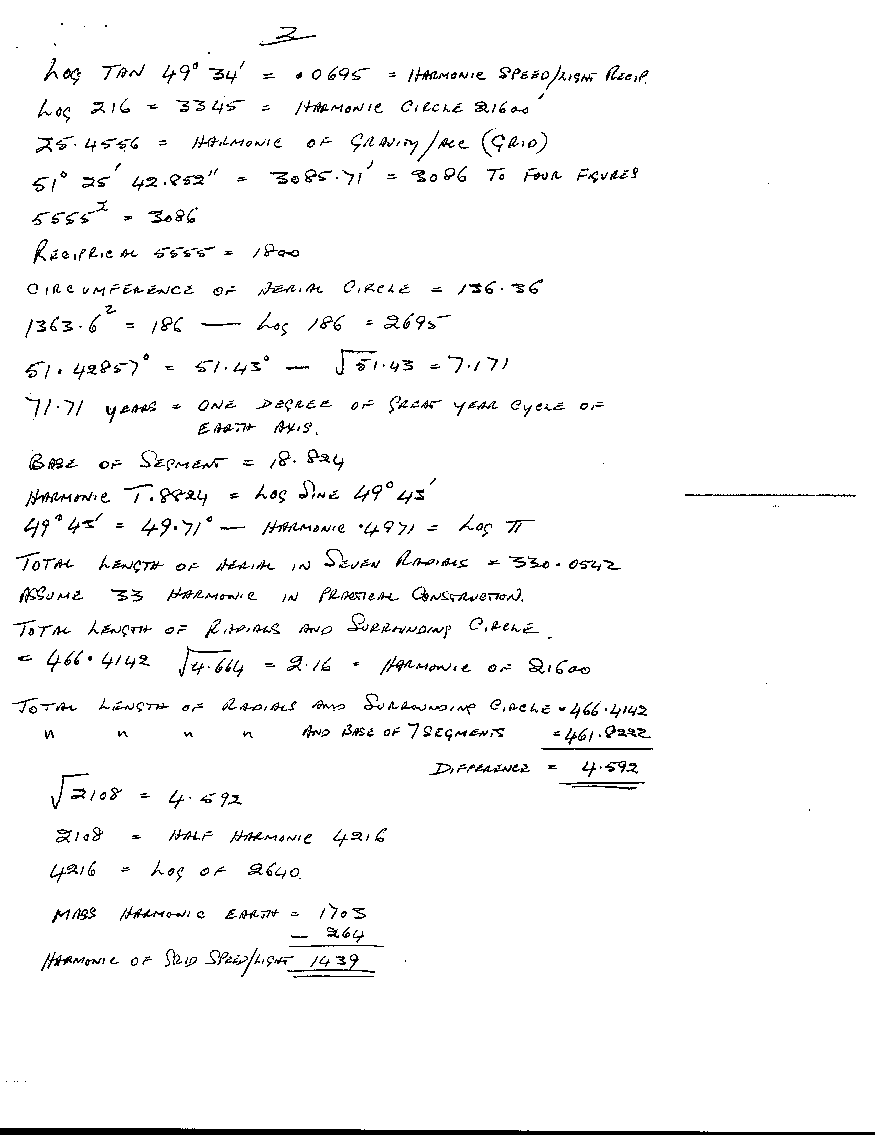 3
LOG TAN 49° 34' = .0695 = HARMONIC SPEED/LIGHT RECIP.
LOG 216 = 3345 = HARMONIC CIRCLE 21600'
25.4556 = HARMONIC OF GRAVITY/ACC (GRID)
51° 25' 42.852" = 3085.71' = 3086 TO FOUR FIGURES
5555² = 3086
RECIPRICAL 5555 = 1800
CIRCUMFERENCE OF AERIAL CIRCLE = 136.36
1363.6² = 186 — LOG 186 = 2695
51.42857° = 51.43° — √51.43 = 7.171
71.71 YEARS = ONE DEGREE OF GREAT YEAR CYCLE OF
EARTH AXIS.
BASE OF SEGMENT = 18.824
HARMONIC T.8824 = LOG SINE 49° 43'
49° 43' = 49.71° — HARMONIC .4971 = LOG π
TOTAL LENGTH OF AERIAL IN SEVEN RADIALS = 330.0542
ASSUME 33 HARMONIC IN PRACTICAL CONSTRUCTION.
TOTAL LENGTH OF RADIALS AND SURROUNDING CIRCLE.
= 466.4142 √4.664 = 2.16 = HARMONIC OF 21600
TOTAL LENGTH OF RADIALS AND SURROUNDING CIRCLE = 466.4142
" " " " AND BASE OF 7 SEGMENTS = 461.8222
DIFFERENCE = 4.592
√2108 = 4.592
2108 = HALF HARMONIC 4216
4216 = LOG OF 2640.
MASS HARMONIC EARTH = 1703
— 264
HARMONIC OF GRID SPEED/LIGHT 1439